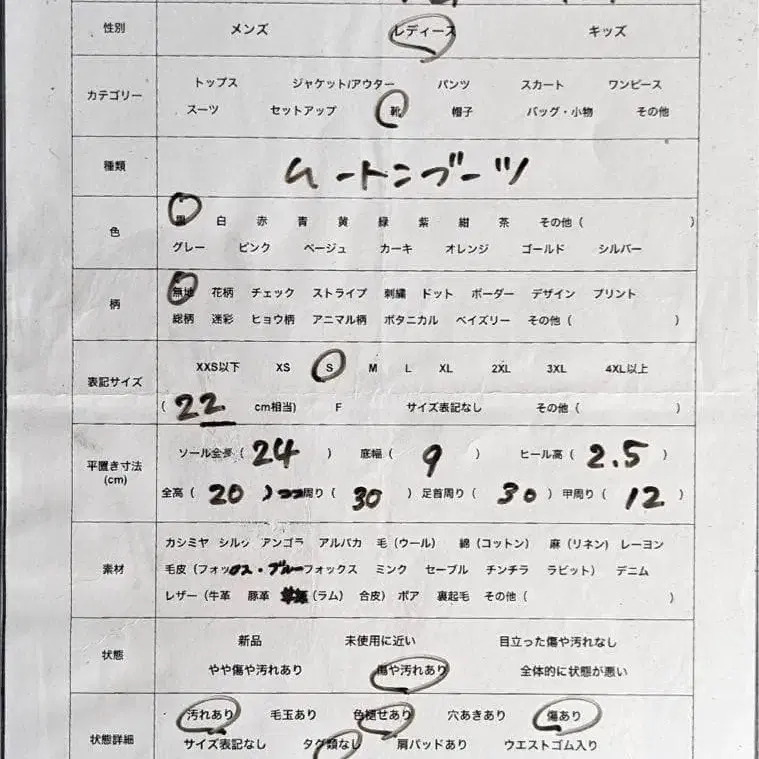 性別 メンズ レディース キッズ
カテゴリー トップス ジャケット/アウター パンツ スカート ワンピース
スーツ セットアップ 靴 帽子 バッグ・小物 その他
種類 ムートンブーツ
色 黒 白 赤 青 黄 緑 紫 紺 茶 その他 ( )
グレー ピンク ベージュ カーキ オレンジ ゴールド シルバー
柄 無地 花柄 チェック ストライプ 刺繍 ドット ボーダー デザイン プリント
総柄 迷彩 ヒョウ柄 アニマル柄 ボタニカル ペイズリー その他 ( )
表記サイズ XXS以下 XS S M L XL 2XL 3XL 4XL以上
( 22 cm相当) F サイズ表記なし その他 ( )
平置き寸法 (cm) ソール全長 ( 24 ) 底幅 ( 9 ) ヒール高 ( 2.5 )
全高 ( 20 ) 周り ( 30 ) 足首周り ( 30 ) 甲周り ( 12 )
素材 カシミヤ シルク アンゴラ アルパカ 毛 (ウール) 綿 (コットン) 麻 (リネン) レーヨン
毛皮 (フォックス・ブルーフォックス ミンク セーブル チンチラ ラビット) デニム
レザー (牛革 豚革 (ラム) 合皮) ボア 裏起毛 その他 ( )
状態 新品 未使用に近い 目立った傷や汚れなし
やや傷や汚れあり 傷や汚れあり 全体的に状態が悪い
状態詳細 汚れあり 毛玉あり 色褪せあり 穴あきあり 傷あり
サイズ表記なし タグ類なし 肩パッドあり ウエストゴム入り